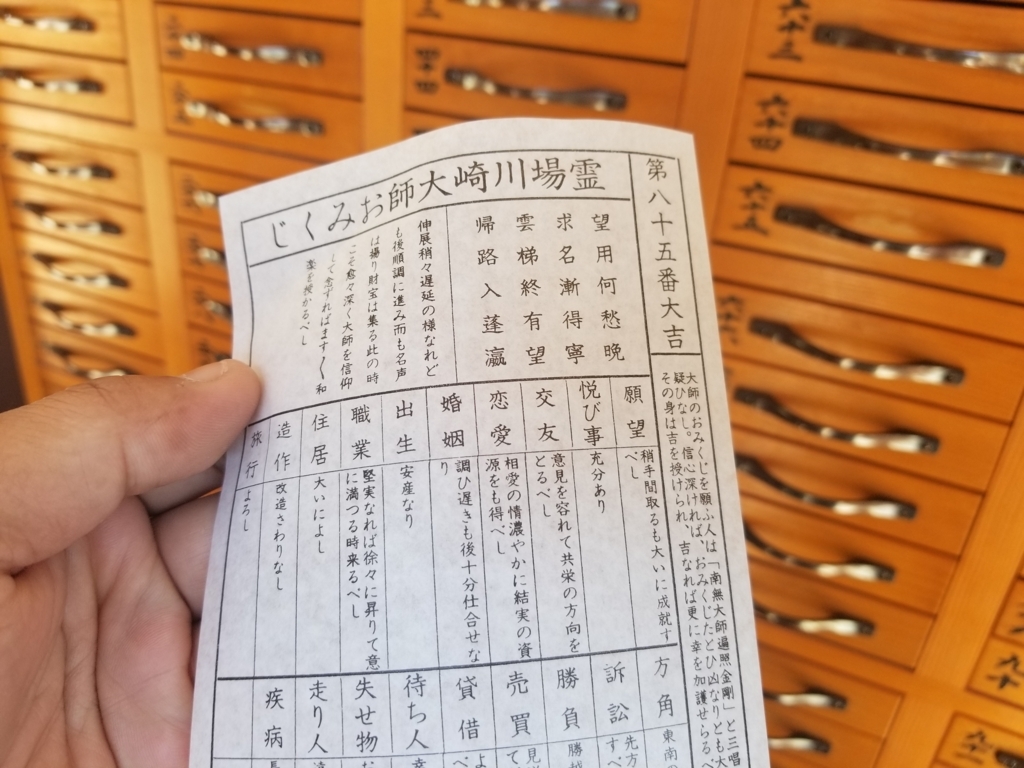 霊場川崎大師おみくじ
第八十五番大吉
望用何愁晩
求名漸得寧
雲梯終有望
帰路入蓬瀛
伸展稍々遅延の様なれど
も後順調に進み而も名声
は揚り財宝は集る此の時
こそ愈々深く大師を信仰
して念ずればます〳〵和
楽を授かるべし
大師のおみくじを願ふ人は「南無大師遍照金剛」と三唱
疑ひなし。信心深ければ、おみくじたとひ凶なりとも大
その身は吉を授けられ 吉なれば更に幸を加護せらるべ
願望
稍手間取るも大いに成就す
べし
悦び事
充分あり
交友
意見を容れて共栄の方向を
とるべし
恋愛
相愛の情濃やかに結実の資
源をも得べし
婚姻
調ひ遅きも後十分仕合せな
り
出生
安産なり
職業
堅実なれば徐々に昇りて意
に満つる時来るべし
住居
大いによし
造作
改造さわりなし
旅行
よろし
方角
東南の
訴訟
先方
すべ
勝負
勝
売買
見
て
貸借
よ
べ
待ち人
失せ物
走り人
疾病
長
四十四
六十三
六十四
六十五
六十六